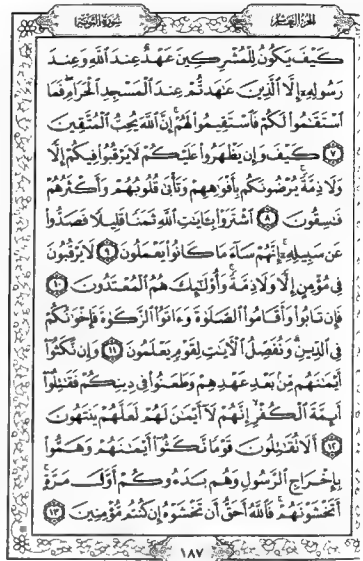 الجزء العاشر
سورة التوبة
كَيْفَ يَكُونُ لِلْمُشْرِكِينَ عَهْدٌ عِندَ ٱللَّهِ وَعِندَ
رَسُولِهِۦٓ إِلَّا ٱلَّذِينَ عَٰهَدتُّمْ عِندَ ٱلْمَسْجِدِ ٱلْحَرَامِ ۖ فَمَا
ٱسْتَقَٰمُوا۟ لَكُمْ فَٱسْتَقِيمُوا۟ لَهُمْ ۚ إِنَّ ٱللَّهَ يُحِبُّ ٱلْمُتَّقِينَ
٧ كَيْفَ وَإِن يَظْهَرُوا۟ عَلَيْكُمْ لَا يَرْقُبُوا۟ فِيكُمْ إِلًّا
وَلَا ذِمَّةً ۚ يُرْضُونَكُم بِأَفْوَٰهِهِمْ وَتَأْبَىٰ قُلُوبُهُمْ وَأَكْثَرُهُمْ
فَٰسِقُونَ ٨ ٱشْتَرَوْا۟ بِـَٔايَٰتِ ٱللَّهِ ثَمَنًا قَلِيلًا فَصَدُّوا۟
عَن سَبِيلِهِۦٓ ۚ إِنَّهُمْ سَآءَ مَا كَانُوا۟ يَعْمَلُونَ ٩ لَا يَرْقُبُونَ
فِى مُؤْمِنٍ إِلًّا وَلَا ذِمَّةً ۚ وَأُو۟لَٰٓئِكَ هُمُ ٱلْمُعْتَدُونَ ١٠
فَإِن تَابُوا۟ وَأَقَامُوا۟ ٱلصَّلَوٰةَ وَءَاتَوُا۟ ٱلزَّكَوٰةَ فَإِخْوَٰنُكُمْ
فِى ٱلدِّينِ ۗ وَنُفَصِّلُ ٱلْـَٔايَٰتِ لِقَوْمٍ يَعْلَمُونَ ١١ وَإِن نَّكَثُوٓا۟
أَيْمَٰنَهُم مِّنۢ بَعْدِ عَهْدِهِمْ وَطَعَنُوا۟ فِى دِينِكُمْ فَقَٰتِلُوٓا۟
أَئِمَّةَ ٱلْكُفْرِ ۙ إِنَّهُمْ لَآ أَيْمَٰنَ لَهُمْ لَعَلَّهُمْ يَنتَهُونَ
١٢ أَلَا تُقَٰتِلُونَ قَوْمًا نَّكَثُوٓا۟ أَيْمَٰنَهُمْ وَهَمُّوا۟
بِإِخْرَاجِ ٱلرَّسُولِ وَهُم بَدَءُوكُمْ أَوَّلَ مَرَّةٍ ۚ
أَتَخْشَوْنَهُمْ ۚ فَٱللَّهُ أَحَقُّ أَن تَخْشَوْهُ إِن كُنتُم مُّؤْمِنِينَ ١٣
١٨٧